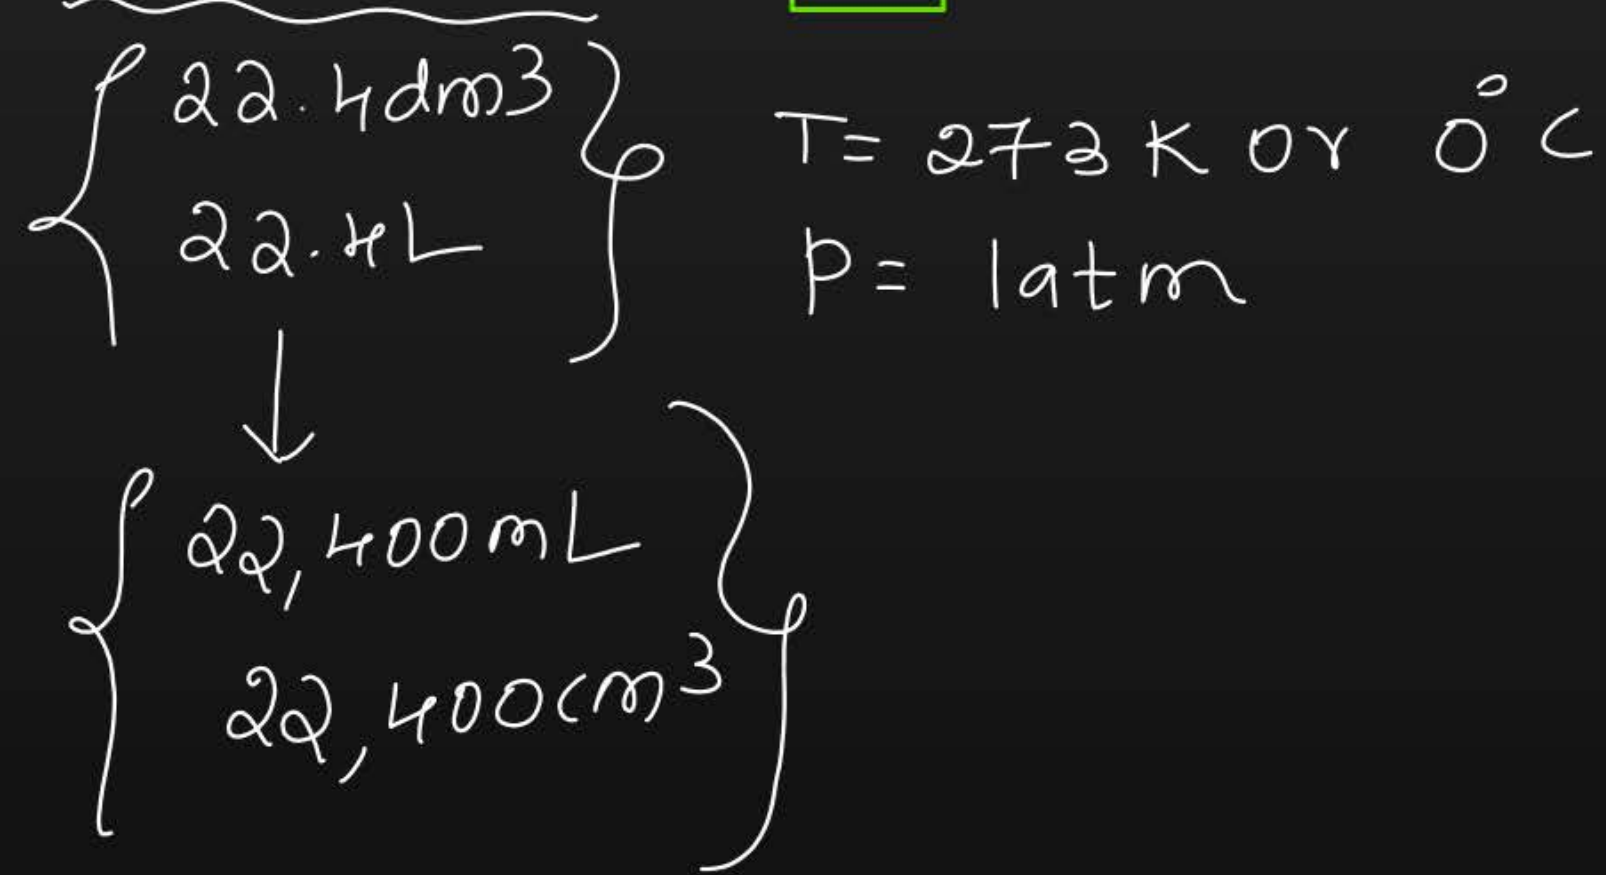 22.4dm3
22.4L
T= 273 K or 0°C
P= 1atm
22,400mL
22,400cm³